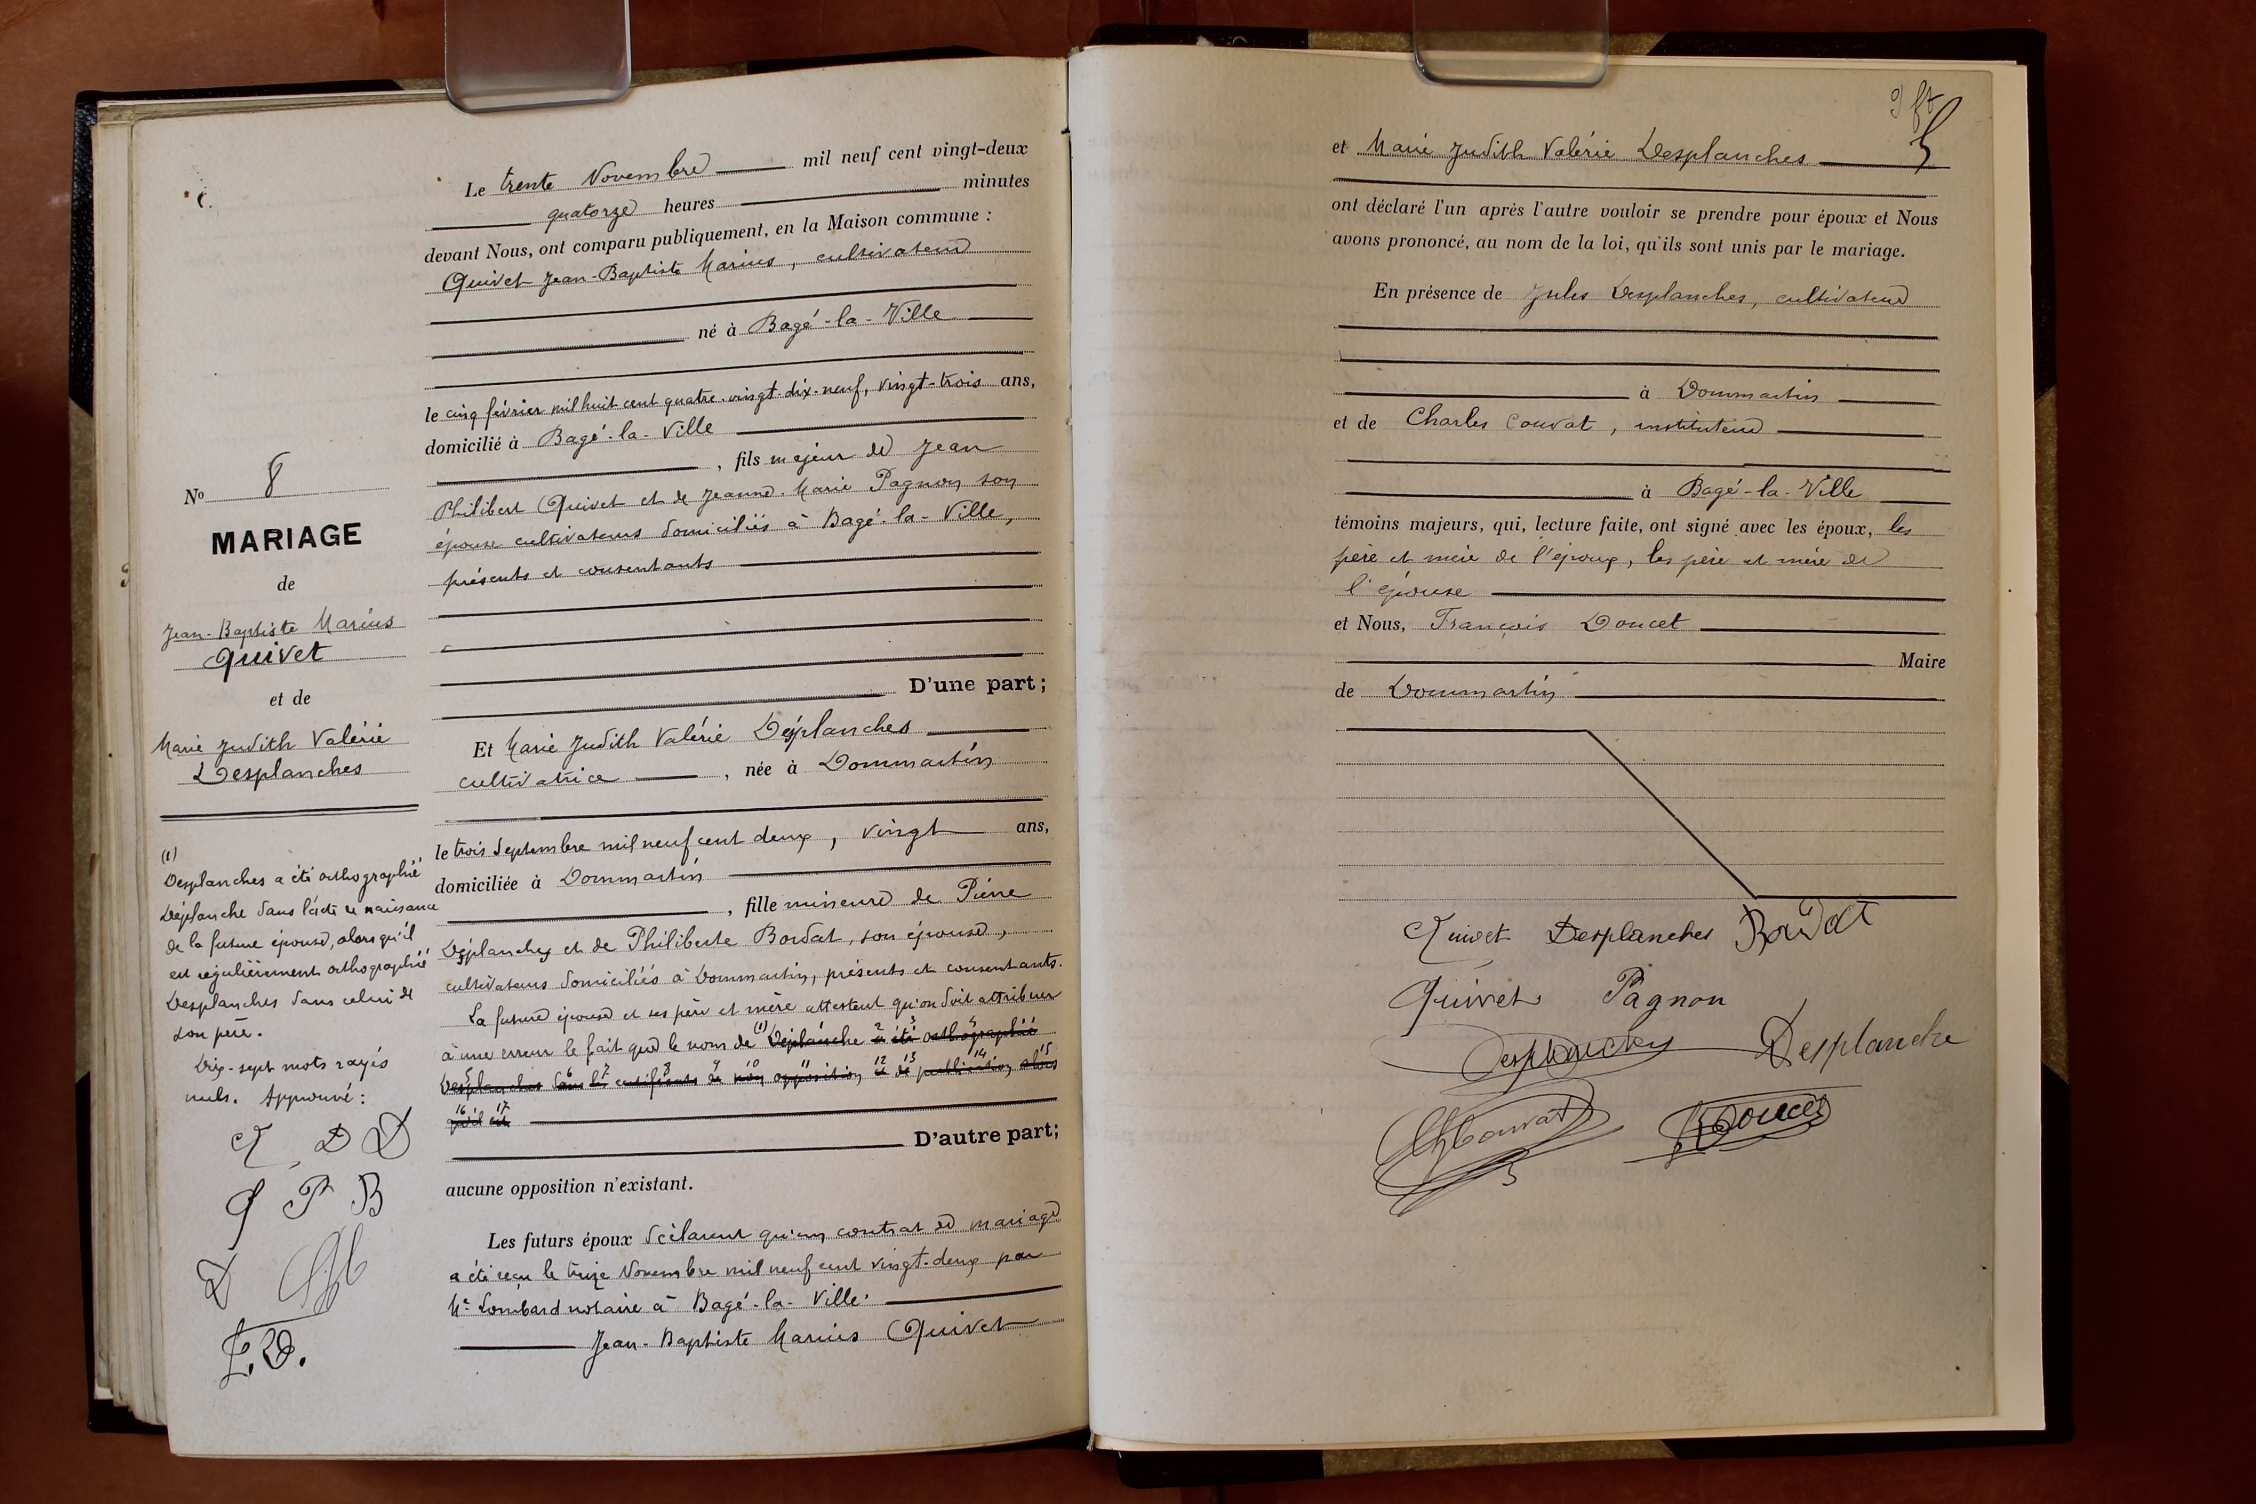 Le trente Novembre mil neuf cent vingt-deux
quatorze heures minutes
devant Nous, ont comparu publiquement, en la Maison commune :
Quivet Jean-Baptiste Marius, cultivateur
né à Bagé-la-Ville
le cinq février mil huit cent quatre-vingt-dix-neuf, vingt-trois ans,
domicilié à Bagé-la-Ville
, fils majeur de Jean
Philibert Quivet et de Jeanne-Marie Pagnon son
épouse cultivateurs domiciliés à Bagé-la-Ville,
présents et consentants
D'une part ;
Et Marie Judith Valérie Desplanches
cultivatrice , née à Dommartin
le trois Septembre mil neuf cent deux, vingt ans,
domiciliée à Dommartin
, fille mineure de Pierre
Desplanches et de Philiberte Bordat, son épouse,
cultivateurs domiciliés à Dommartin, présents et consentants.
La future épouse et ses père et mère attestent qu'on doit attribuer
à une erreur le fait que le nom de (1) Déplanche a été orthographié
Desplanches dans les certificats de non opposition et de publication, alors
qu'il est
D'autre part ;
aucune opposition n'existant.
Les futurs époux déclarent qu'un contrat de mariage
a été reçu le treize Novembre mil neuf cent vingt-deux par
Me Lombard notaire à Bagé-la-Ville.
Jean-Baptiste Marius Quivet
No 8
MARIAGE
de
Jean-Baptiste Marius
Quivet
et de
Marie Judith Valérie
Desplanches
(1)
Desplanches a été orthographié
Déplanche dans l'acte de naissance
de la future épouse, alors qu'il
est régulièrement orthographié
Desplanches dans celui de
son père.
Dix-sept mots rayés
nuls. Approuvé :
Q D D
Q P B
D
F. D.
et Marie Judith Valérie Desplanches
ont déclaré l'un après l'autre vouloir se prendre pour époux et Nous
avons prononcé, au nom de la loi, qu'ils sont unis par le mariage.
En présence de Jules Desplanches, cultivateur
à Dommartin
et de Charles Couvat, instituteur
à Bagé-la-Ville
témoins majeurs, qui, lecture faite, ont signé avec les époux, les
père et mère de l'époux, les père et mère de
l'épouse
et Nous, François Doucet
Maire
de Dommartin
Quivet Desplanches Bordat
Quivet Pagnon
Desplanches Desplanche
Ch Couvat F Doucet